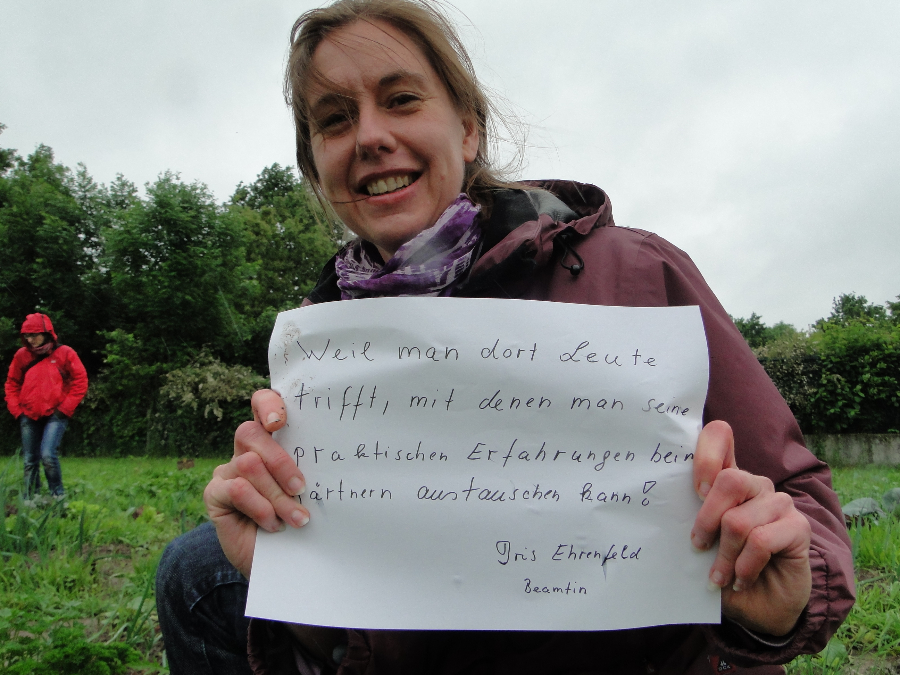 Weil man dort Leute
trifft, mit denen man seine
praktischen Erfahrungen beim
Gärtnern austauschen kann!
Iris Ehrenfeld
Beamtin